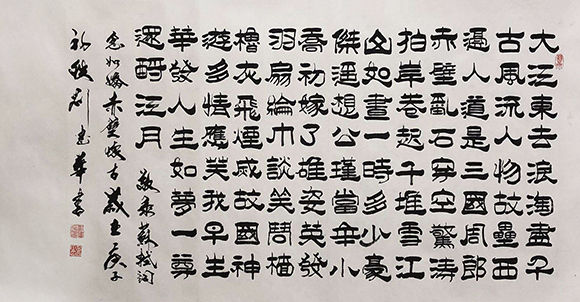 大江東去浪淘盡千
古風流人物故壘西
邊人道是三國周郎
赤壁亂石穿空驚濤
拍岸卷起千堆雪江
山如畫一時多少豪
傑遥想公瑾當年小
喬初嫁了雄姿英發
羽扇綸巾談笑間檣
櫓灰飛煙滅故國神
遊多情應笑我早生
華發人生如夢一尊
還酹江月 敬录蘇軾詞
念奴嬌赤壁懷古歲在庚子
初秋劉志華書